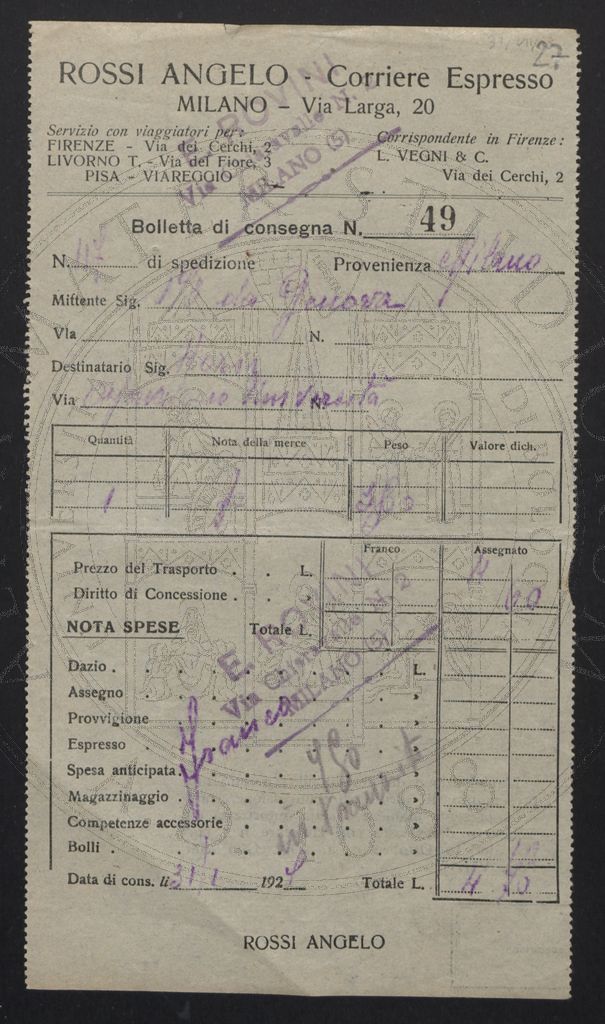 27
ROSSI ANGELO - Corriere Espresso
MILANO - Via Larga, 20
Servizio con viaggiatori per:
FIRENZE - Via dei Cerchi, 2
LIVORNO T. - Via del Fiore, 3
PISA - VIAREGGIO
Corrispondente in Firenze:
L. VEGNI & C.
Via dei Cerchi, 2
E. ROVINI
MILANO (5)
Bolletta di consegna N. 49
N. 47 di spedizione Provenienza Milano
Mittente Sig. da Genova
Via N.
Destinatario Sig.
Via Università N.
Quantità Nota della merce Peso Valore dich.
1
Franco Assegnato
Prezzo del Trasporto . . L. 4
Diritto di Concessione . . »
NOTA SPESE Totale L.
E. ROVINI
N. 2
MILANO (5)
Dazio . L.
Assegno »
Provvigione »
Espresso »
Spesa anticipata »
Magazzinaggio »
Competenze accessorie »
Bolli »
Franco
in
Data di cons. li 31/1 192 Totale L. 4
ROSSI ANGELO